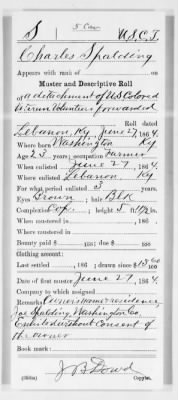 S | 5 Cav | U.S.C.T.
Charles Spalding
Appears with rank of
Muster and Descriptive Roll
of a detachment of U.S. Colored
Veteran Volunteers forwarded
Roll dated
Lebanon, Ky June 27, 1864.
Where born Washington Ky
Age 23 years; occupation Farmer
When enlisted June 27, 1864.
Where enlisted Lebanon, Ky
For what period enlisted 3 years.
Eyes Brown; hair Blk
Complexion Cop; height 5 ft. in.
When mustered in , 186 .
Where mustered in
Bounty paid $ 100; due $ 100
Clothing account:
Last settled , 186 ; drawn since $ 100
Date of first muster June 27, 1864.
Company to which assigned
Remarks: Owners name & residence,
Joe Spalding, Washington Co.
Enlisted without Consent of
the owner
Book mark:
J B Dowd
Copyist.